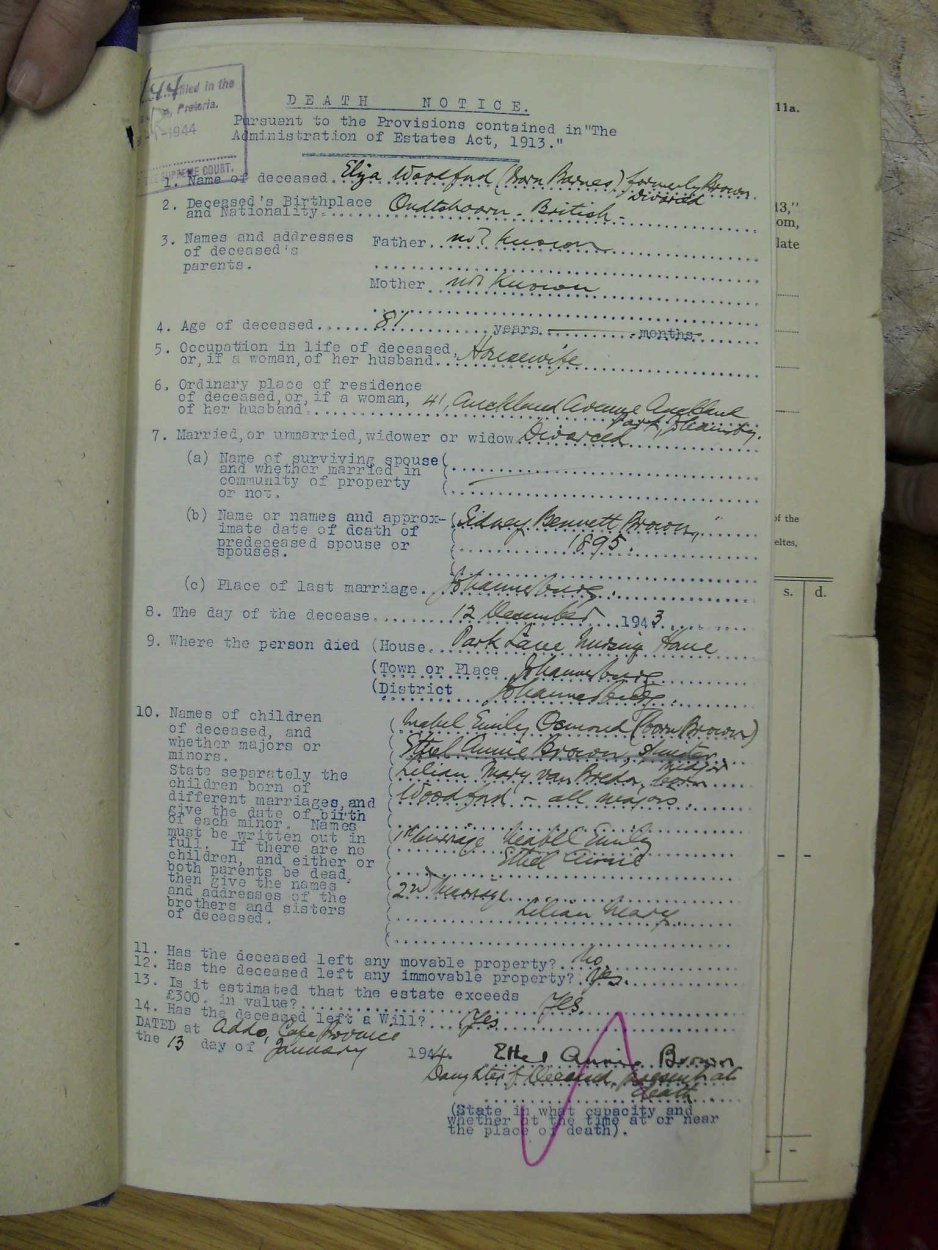 filed in the
Pretoria.
1944
SUPREME COURT.
DEATH NOTICE.
Pursuant to the Provisions contained in "The
Administration of Estates Act, 1913."
1. Name of deceased. Eliza Woodford (Born Barnes) formerly Brown
Divorced
2. Deceased's Birthplace
and Nationality. Oudtshoorn - British -
3. Names and addresses
of deceased's
parents.
Father. not known
Mother not known
4. Age of deceased 81 years months
5. Occupation in life of deceased
or, if a woman, of her husband. Housewife
6. Ordinary place of residence
of deceased, or, if a woman,
of her husband. 41, Auckland Avenue Auckland
Park, Johannesburg.
7. Married, or unmarried, widower or widow. Divorced
(a) Name of surviving spouse
and whether married in
community of property
or not.
(b) Name or names and approx-
imate date of death of
predeceased spouse or
spouses.
Sidney Bennett Brown,
1895.
(c) Place of last marriage. Johannesburg.
8. The day of the decease. 12 December 1943
9. Where the person died (House. Park Lane Nursing Home
(Town or Place Johannesburg
(District Johannesburg
10. Names of children
of deceased, and
whether majors or
minors.
State separately the
children born of
different marriages, and
give the date of birth
of each minor. Names
must be written out in
full. If there are no
children, and either or
both parents be dead,
then give the names
and addresses of the
brothers and sisters
of deceased.
Mabel Emily Osmond (Born Brown)
Ethel Annie Brown, Spinster
major
Lilian Mary van Breda, born
Woodford - all majors.
1st marriage Mabel Emily
Ethel Annie
2nd marriage
Lilian Mary.
11. Has the deceased left any movable property? No.
12. Has the deceased left any immovable property? Yes.
13. Is it estimated that the estate exceeds
£300. in value? Yes.
14. Has the deceased left a Will? Yes
DATED at Addo, Cape Province
the 13 day of January 1944.
Ethel Annie Brown
Daughter of Deceased, present at
death
(State in what capacity and
whether at the time at or near
the place of death).
11a.
13,"
om,
late
of the
eltes,
s. d.